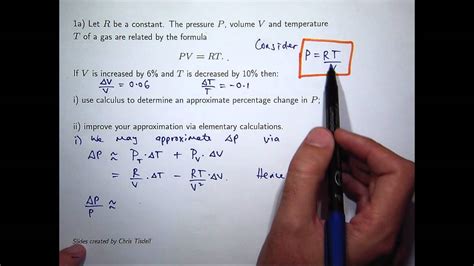 1a) Let R be a constant. The pressure P, volume V and temperature
T of a gas are related by the formula
PV = RT.
Consider P = RT/V
If V is increased by 6% and T is decreased by 10% then:
ΔV/V = 0.06 ΔT/T = -0.1
i) use calculus to determine an approximate percentage change in P;
ii) improve your approximation via elementary calculations.
i) We may approximate ΔP via
ΔP ≈ P_T · ΔT + P_V · ΔV
= R/V · ΔT - RT/V² · ΔV Hence
ΔP/P ≈
Slides created by Chris Tisdell